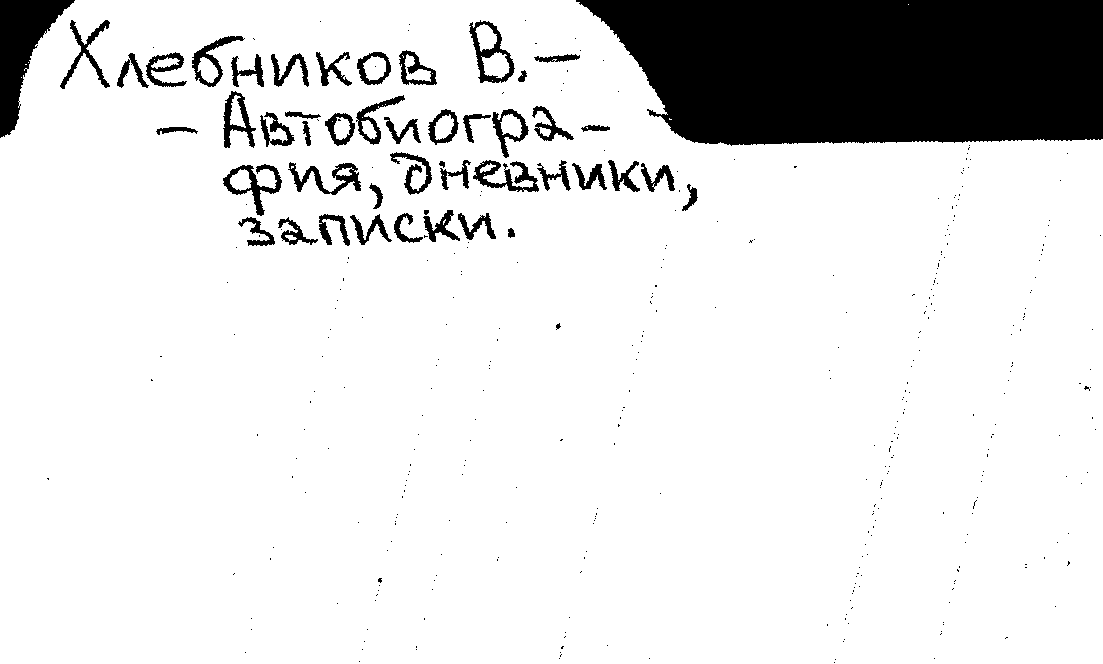 Хлебников В. –
– Автобиогра-
фия, дневники,
записки.